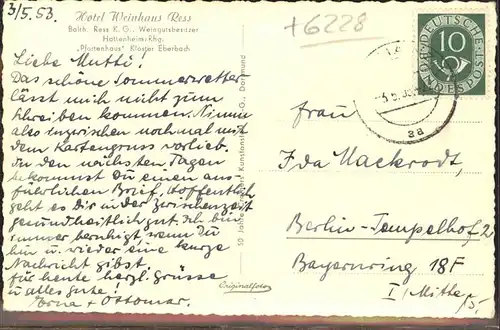 3/5.53
Hotel Weinhaus Ress
Balth. Ress K.G., Weingutsbesitzer
Hattenheim/Rhg.
„Pfortenhaus" Kloster Eberbach
+6228
Liebe Mutti!
Das schöne Sommerwetter
lässt mich nicht zum
Schreiben kommen. Nimm
also inzwischen nochmal mit
dem Kartengruss vorlieb.
In den nächsten Tagen
bekommst Du einen aus-
führlichen Brief. Hoffentlich
geht es Dir in der Zwischenzeit
gesundheitlich gut. Ich bin
immer beruhigt wenn Du
hin u. wieder eine kurze
Nachricht gibst.
Für heute herzl. Grüsse
u. alles gute!
Erna + Ottomar.
50 Jahre Konstantin G., Dortmund
Originalfoto
DEUTSCHE
BUNDESPOST
10
aa
Frau
Ida Mackrodt,
Berlin-Tempelhof 2
Bayernring 18F
I/Mitte